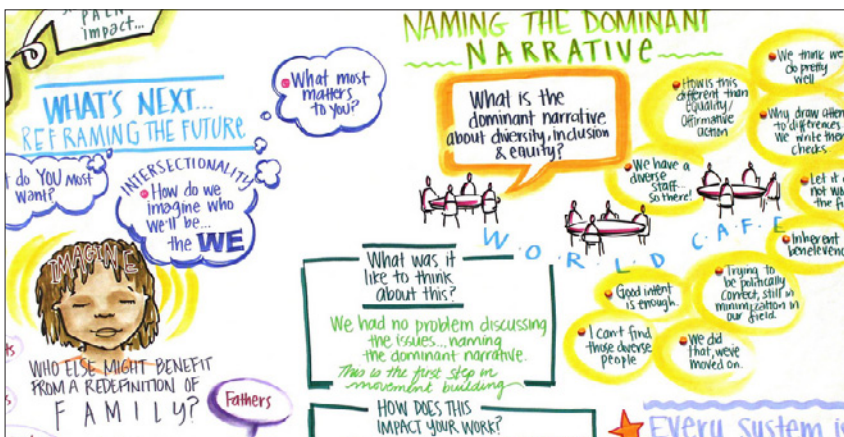 PAIN
impact...
WHAT'S NEXT...
REFRAMING THE FUTURE
What most
matters
to you?
do YOU Most
Want?
INTERSECTIONALITY
How do we
imagine who
we'll be...
the WE
IMAGINE
WHO ELSE MIGHT BENEFIT
FROM A REDEFINITION OF
FAMILY?
Fathers
NAMING THE DOMINANT
NARRATIVE
What is the
dominant narrative
about diversity, inclusion
& equity?
WORLD CAFE
How is this
different than
Equality/
Affirmative
action
We think we
do pretty
well
Why draw
to differences
We write
checks.
We have a
diverse
staff...
So there!
Let it
not
the
Inherent
Good intent
is enough.
Trying to
be politically
correct, still in
minimization in
our field.
I can't find
those diverse
people
We did
that, we've
moved on.
What was it
like to think
about this?
We had no problem discussing
the issues... naming
the dominant narrative.
This is the first step in
movement building
HOW DOES THIS
IMPACT YOUR WORK?
Every system is